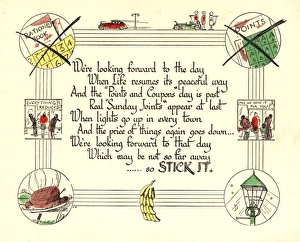 RATION BOOK
POINTS
We're looking forward to the day
When Life resumes its peaceful way
And the "Points and Coupons" day is past
Real 'Sunday Joints' appear at last
When lights go up in every town
And the price of things again goes down...
We're looking forward to that day
Which may be not so far away
...... so STICK IT.
EVERYTHING
REDUCED